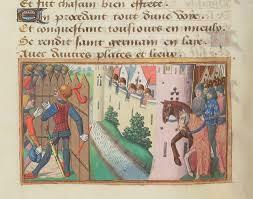 Et fut chascun bien effree.
En procedant tout dune voye.
Et conquestant tousiours en mieulx
Se rendit saint germain en laye
Auec dautres places et lieux.